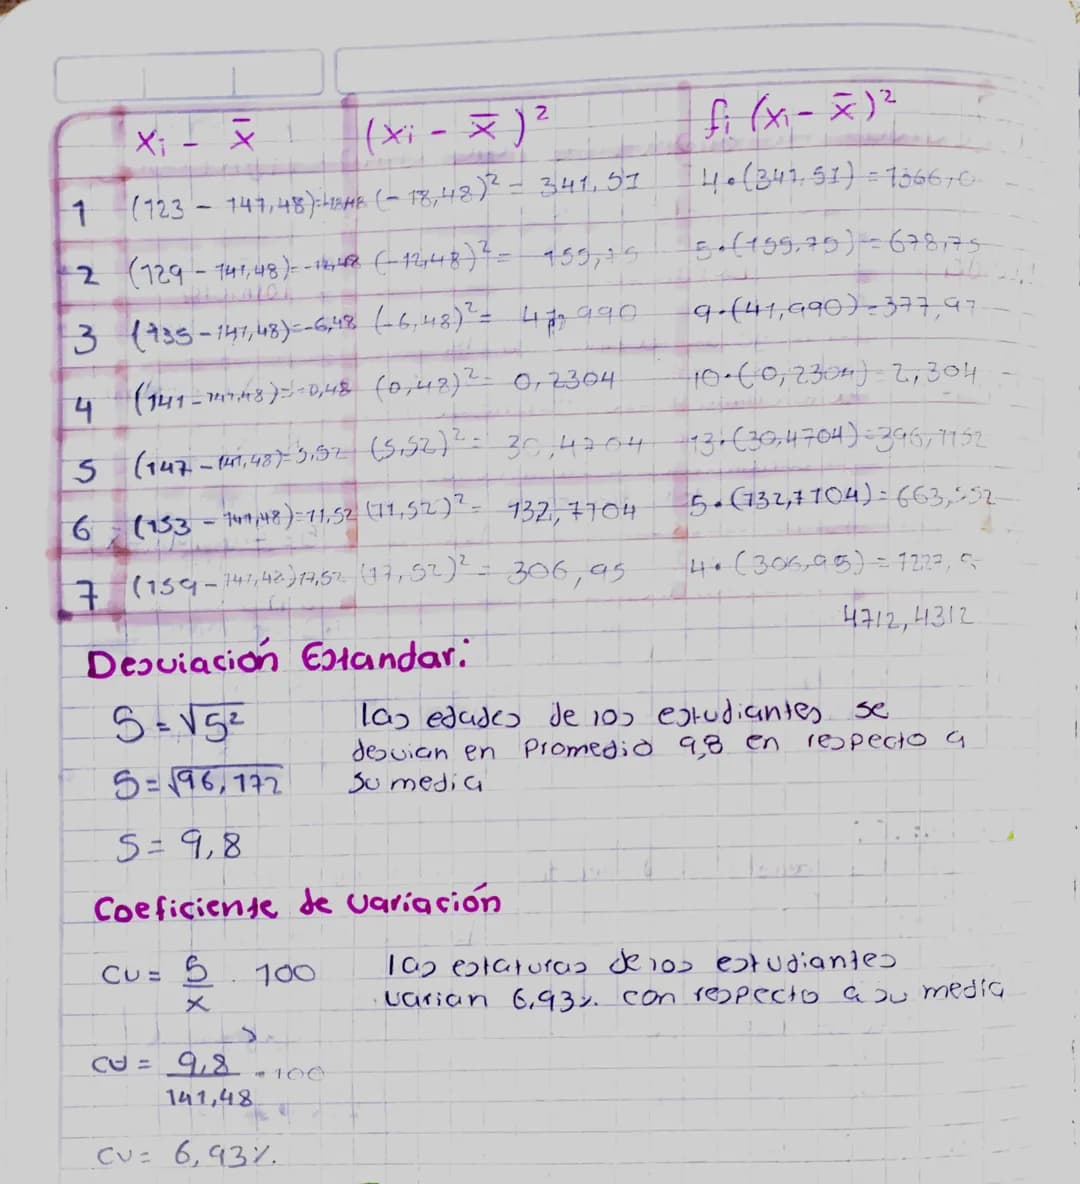 Xi - x̄ (xi - x̄)² fi (xi - x̄)²
1 (123 - 141,48)= (-18,48)² = 341,51 4•(341,51) = 1366,0
2 (129 - 141,48)=-12,48 (-12,48)² = 155,75 5•(155,75) = 678,75
3 (135 - 141,48)=-6,48 (-6,48)² = 41,990 9•(41,990) = 377,91
4 (141 - 141,48)=-0,48 (0,48)² = 0,2304 10•(0,2304) = 2,304
5 (147 - 141,48)=5,52 (5,52)² = 30,4704 13•(30,4704) = 396,1152
6 (153 - 141,48)=11,52 (11,52)² = 132,7104 5•(132,7104) = 663,552
7 (159 - 141,48)17,52 (17,52)² = 306,95 4•(306,95) = 1227,
4712,4312
Desviación Estandar:
S = √S²
las edades de los estudiantes se
desvian en Promedio 9,8 en respecto a
S = √96,172
su media
S = 9,8
Coeficiente de Variación
CV = S/x . 100
las estaturas de los estudiantes
varian 6,93% con respecto a su media
CV = 9,8/141,48 • 100
CV = 6,93%.